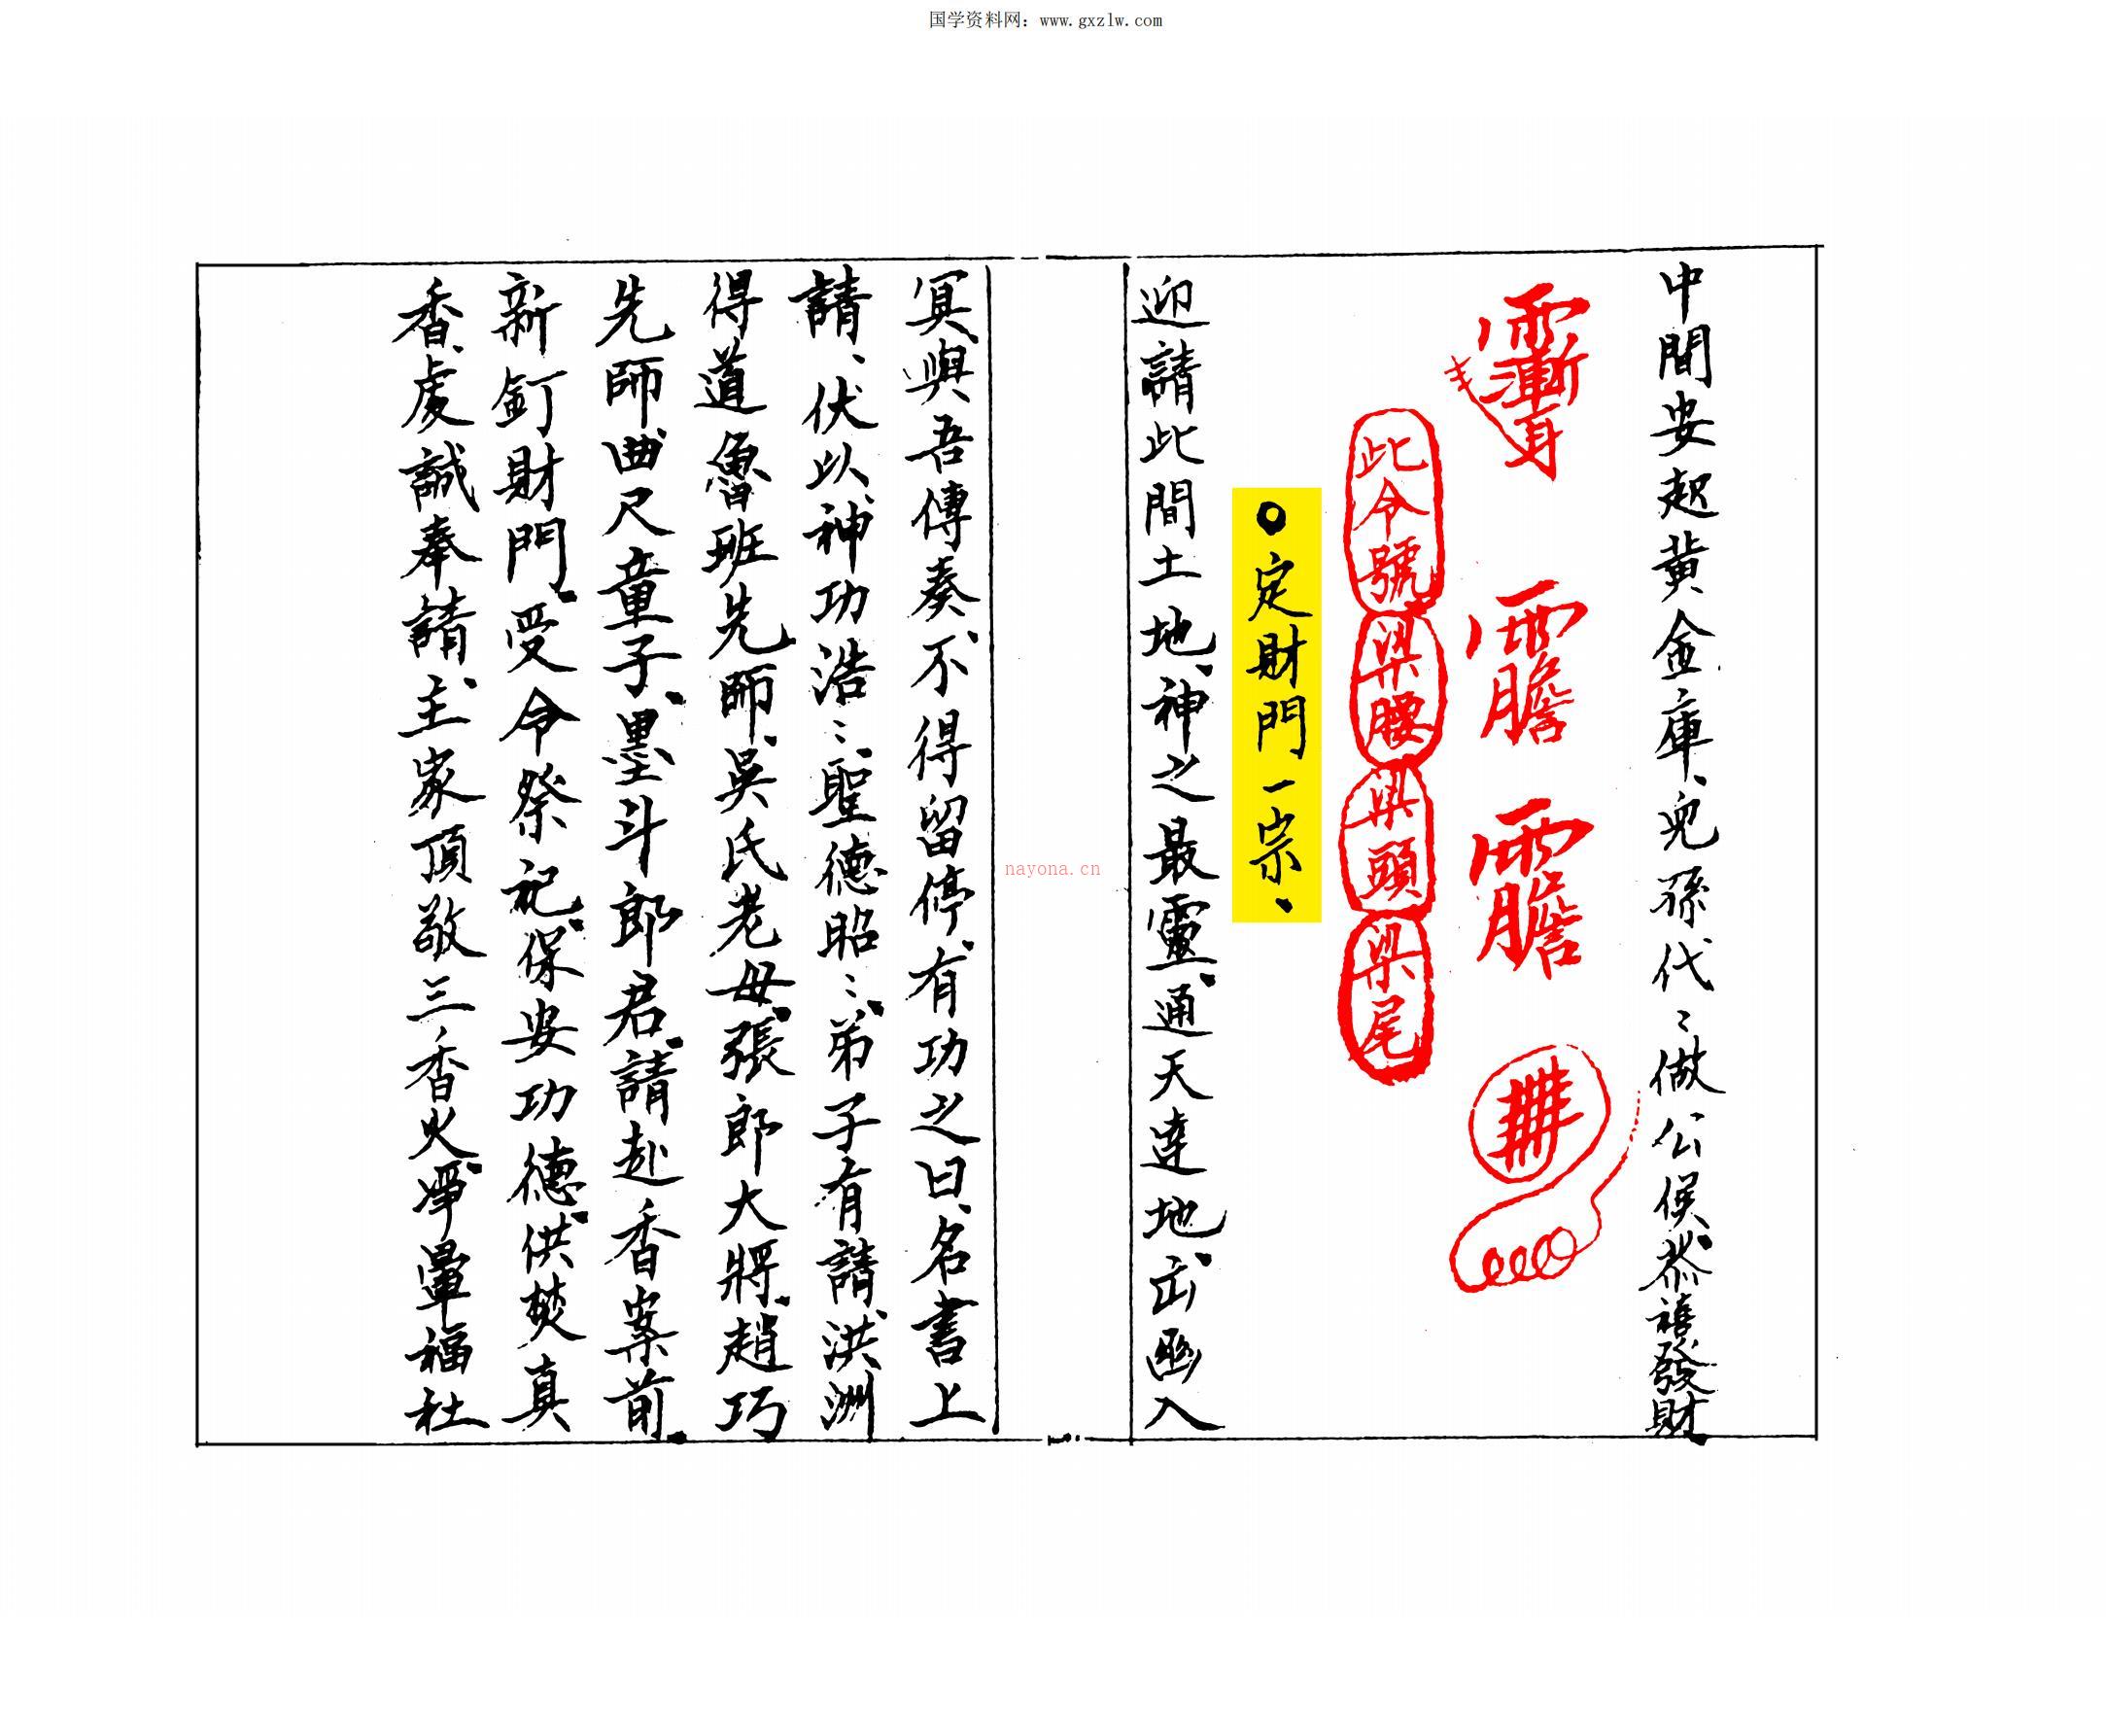 国学资料网：www.gxzlw.com
中間安起黄金庫、兒孫代〻做公侯、恭禧發財、
此令號 梁腰 梁頭 梁尾
○定財門一宗、
迎請此間土地、神之最靈、通天達地、出幽入
冥、與吾傳奏、不得留停、有功之日、名書上
請、伏以、神功浩〻、聖德昭〻、弟子有請、洪洲
得道魯班先師、吳氏老母、張郎大將、趙巧
先師、曲尺童子、墨斗郎君、請赴香案前、
新釘財門、受令祭祀、保安功德、供焚真
香、虔誠奉請、主家頂敬三香火、福社
nayona.cn